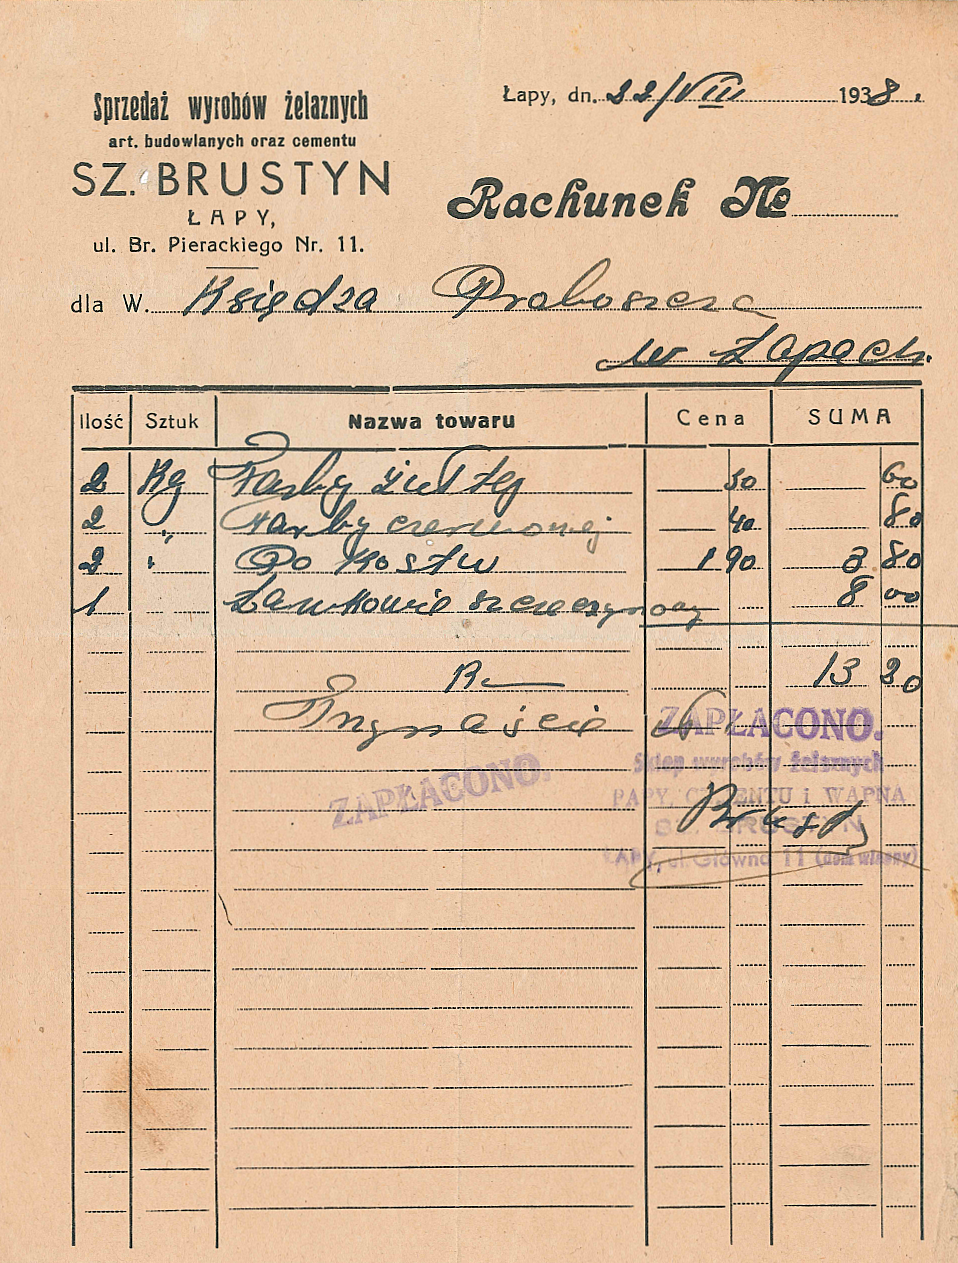 Sprzedaż wyrobów żelaznych
art. budowlanych oraz cementu
SZ. BRUSTYN
ŁAPY,
ul. Br. Pierackiego Nr. 11.
Łapy, dn. 22/VIII 1938.
Rachunek №
dla W. Księdza Proboszcza
w Łapach.
Ilość Sztuk Nazwa towaru Cena SUMA
2 Kg Farby żułtej 30 60
2 " Farby czerwonej 40 80
2 " Pokostu 1 90 3 80
1 Ławkowie 8 00
13 20
ZAPŁACONO.
Sklep wyrobów żelaznych
PAPY, CEMENTU i WAPNA
SZ. BRUSTYN
ŁAPY, ul. Główna 11 (dom własny)
ZAPŁACONO.